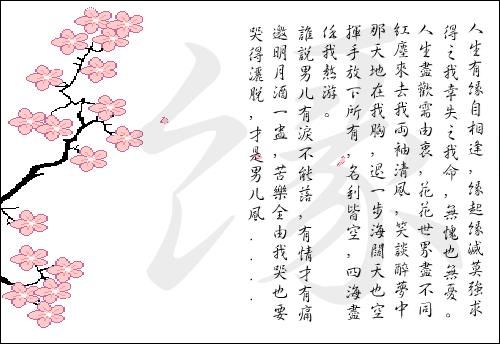 人生有緣自相逢，緣起緣滅莫強求
得之我幸失之我命，無愧也無憂。
人生盡歡需由衷，花花世界盡不同
紅塵來去我両袖清風，笑談醉夢中
那天地在我胸，退一步海闊天也空
揮手放下所有，名利皆空，四海盡
任我熬游。
誰說男儿有淚不能落，有情才有痛
邀明月酒一盅，苦樂全由我哭也要
哭得灑脫，才是男儿風．．．．
緣